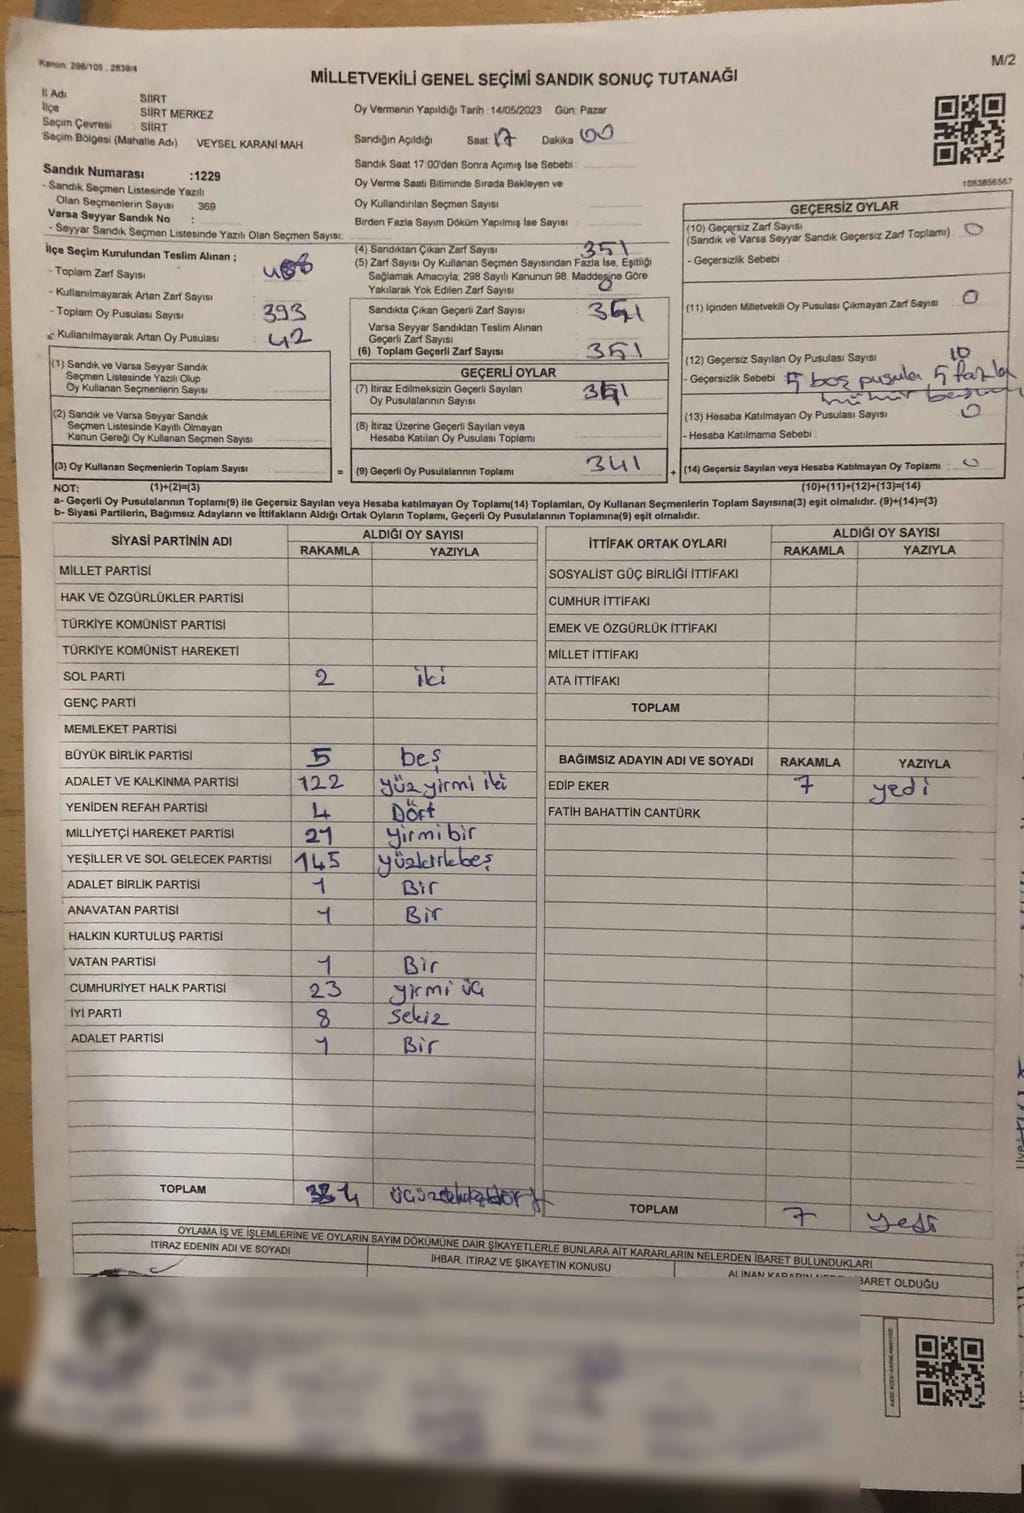 Kanun: 298/105 , 2839/4
M/2
MİLLETVEKİLİ GENEL SEÇİMİ SANDIK SONUÇ TUTANAĞI
İl Adı SİİRT
İlçe SİİRT MERKEZ
Seçim Çevresi : SİİRT
Seçim Bölgesi (Mahalle Adı) VEYSEL KARANİ MAH
Sandık Numarası :1229
- Sandık Seçmen Listesinde Yazılı
Olan Seçmenlerin Sayısı 369
Varsa Seyyar Sandık No :
- Seyyar Sandık Seçmen Listesinde Yazılı Olan Seçmen Sayısı:
Oy Vermenin Yapıldığı Tarih :14/05/2023 Gün: Pazar
Sandığın Açıldığı Saat 17 Dakika 00
Sandık Saat 17:00'den Sonra Açımış İse Sebebi :
Oy Verme Saati Bitiminde Sırada Bekleyen ve
Oy Kullandırılan Seçmen Sayısı
Birden Fazla Sayım Döküm Yapılmış İse Sayısı :
1083856567
İlçe Seçim Kurulundan Teslim Alınan ;
- Toplam Zarf Sayısı
- Kullanılmayarak Artan Zarf Sayısı
- Toplam Oy Pusulası Sayısı 393
- Kullanılmayarak Artan Oy Pusulası 42
(1) Sandık ve Varsa Seyyar Sandık
Seçmen Listesinde Yazılı Olup
Oy Kullanan Seçmenlerin Sayısı
(2) Sandık ve Varsa Seyyar Sandık
Seçmen Listesinde Kayıtlı Olmayan
Kanun Gereği Oy Kullanan Seçmen Sayısı
(3) Oy Kullanan Seçmenlerin Toplam Sayısı =
(4) Sandıktan Çıkan Zarf Sayısı 351
(5) Zarf Sayısı Oy Kullanan Seçmen Sayısından Fazla İse, Eşitliği
Sağlamak Amacıyla; 298 Sayılı Kanunun 98. Maddesine Göre
Yakılarak Yok Edilen Zarf Sayısı 0
Sandıkta Çıkan Geçerli Zarf Sayısı 351
Varsa Seyyar Sandıktan Teslim Alınan
Geçerli Zarf Sayısı
(6) Toplam Geçerli Zarf Sayısı 351
GEÇERLİ OYLAR
(7) İtiraz Edilmeksizin Geçerli Sayılan
Oy Pusulalarının Sayısı
(8) İtiraz Üzerine Geçerli Sayılan veya
Hesaba Katılan Oy Pusulası Toplamı
(9) Geçerli Oy Pusulalarının Toplamı 341 +
GEÇERSİZ OYLAR
(10) Geçersiz Zarf Sayısı 0
(Sandık ve Varsa Seyyar Sandık Geçersiz Zarf Toplamı)
- Geçersizlik Sebebi
(11) İçinden Milletvekili Oy Pusulası Çıkmayan Zarf Sayısı 0
(12) Geçersiz Sayılan Oy Pusulası Sayısı 10
- Geçersizlik Sebebi 5 boş pusula, 5 fazla
mühür
(13) Hesaba Katılmayan Oy Pusulası Sayısı 0
- Hesaba Katılmama Sebebi
(14) Geçersiz Sayılan veya Hesaba Katılmayan Oy Toplamı : 0
NOT: (1)+(2)=(3)
(10)+(11)+(12)+(13)=(14)
a- Geçerli Oy Pusulalarının Toplamı(9) ile Geçersiz Sayılan veya Hesaba katılmayan Oy Toplamı(14) Toplamları, Oy Kullanan Seçmenlerin Toplam Sayısına(3) eşit olmalıdır. (9)+(14)=(3)
b- Siyasi Partilerin, Bağımsız Adayların ve İttifakların Aldığı Ortak Oyların Toplamı, Geçerli Oy Pusulalarının Toplamına(9) eşit olmalıdır.
SİYASİ PARTİNİN ADI ALDIĞI OY SAYISI
RAKAMLA YAZIYLA
MİLLET PARTİSİ
HAK VE ÖZGÜRLÜKLER PARTİSİ
TÜRKİYE KOMÜNİST PARTİSİ
TÜRKİYE KOMÜNİST HAREKETİ
SOL PARTİ 2 iki
GENÇ PARTİ
MEMLEKET PARTİSİ
BÜYÜK BİRLİK PARTİSİ 5 beş
ADALET VE KALKINMA PARTİSİ 122 yüzyirmi iki
YENİDEN REFAH PARTİSİ 4 Dört
MİLLİYETÇİ HAREKET PARTİSİ 21 yirmibir
YEŞİLLER VE SOL GELECEK PARTİSİ 145 yüzkırkbeş
ADALET BİRLİK PARTİSİ 1 Bir
ANAVATAN PARTİSİ 1 Bir
HALKIN KURTULUŞ PARTİSİ
VATAN PARTİSİ 1 Bir
CUMHURİYET HALK PARTİSİ 23 yirmi üç
İYİ PARTİ 8 sekiz
ADALET PARTİSİ 1 Bir
TOPLAM
İTTİFAK ORTAK OYLARI ALDIĞI OY SAYISI
RAKAMLA YAZIYLA
SOSYALİST GÜÇ BİRLİĞİ İTTİFAKI
CUMHUR İTTİFAKI
EMEK VE ÖZGÜRLÜK İTTİFAKI
MİLLET İTTİFAKI
ATA İTTİFAKI
TOPLAM
BAĞIMSIZ ADAYIN ADI VE SOYADI RAKAMLA YAZIYLA
EDİP EKER 7 yedi
FATİH BAHATTİN CANTÜRK
TOPLAM 7 yedi
OYLAMA İŞ VE İŞLEMLERİNE VE OYLARIN SAYIM DÖKÜMÜNE DAİR ŞİKAYETLERLE BUNLARA AİT KARARLARIN NELERDEN İBARET BULUNDUKLARI
İTİRAZ EDENİN ADI VE SOYADI
İHBAR, İTİRAZ VE ŞİKAYETİN KONUSU